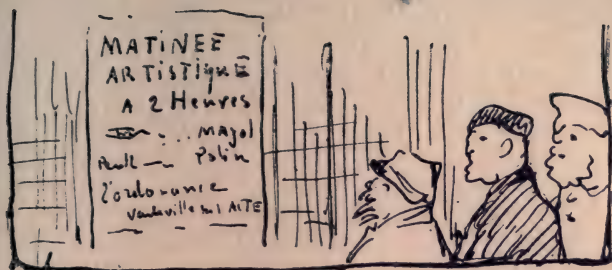 MATINEE
ARTISTIQUE
A 2 Heures
... Mayol
Polin
l'ordonnance
vaudeville en 1 ACTE